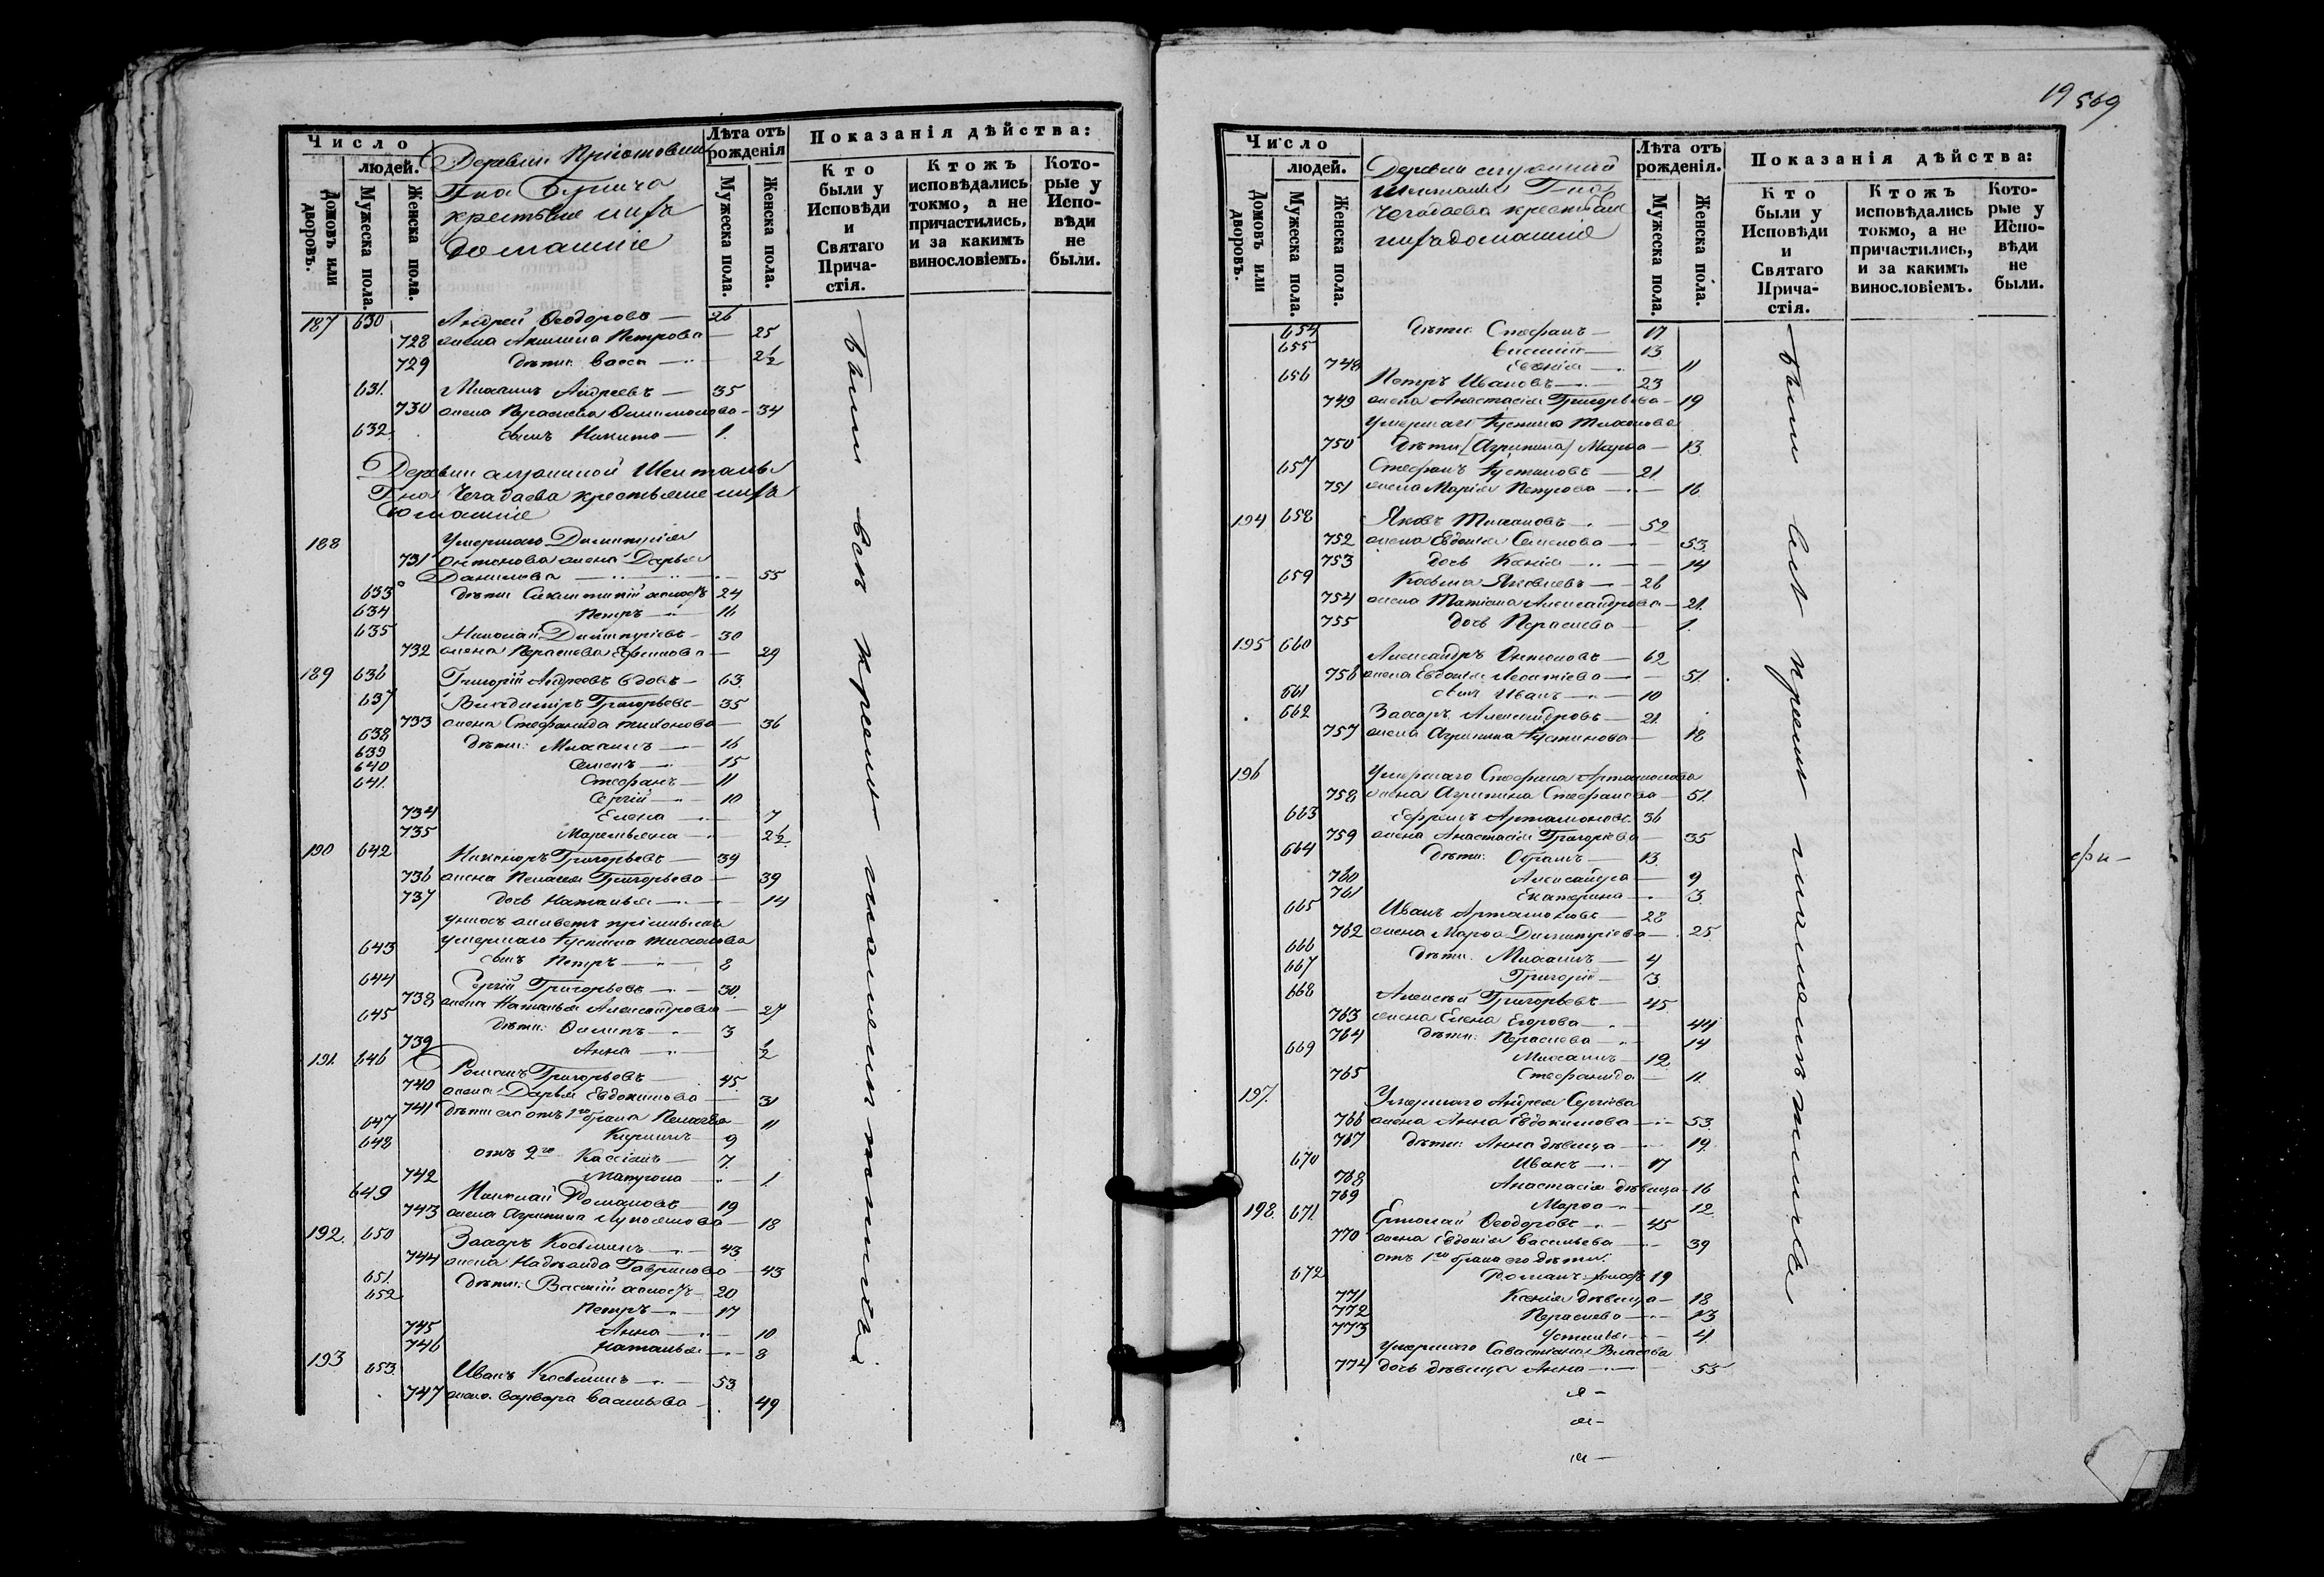 Число
людей.
Домовъ или дворовъ.
Мужеска пола.
Женска пола.
Деревни
Г-на
крестьяне и ихъ
домашніе
Лѣта отъ рожденія
Мужеска пола.
Женска пола.
Показанія дѣйства:
Кто были у Исповѣди и Святаго Прича-стія.
Ктожъ исповѣдались токмо, а не причастились, и за какимъ винословіемъ.
Кото-рые у Испо-вѣди не были.
187 630 Андрей Ѳеодоровъ — 26
728 жена Акилина Петрова — 25
729 дѣти: Васса — 2½
631. Михаилъ Андреевъ — 35
730 жена Параскева — 34
632. сынъ Никита — 1.
Деревни Шенталы
Г-на Чегодаева крестьяне и ихъ
домашніе
188 Умершаго Димитрія
731 Антонова жена Дарья
Данилова — 55
633 дѣти: холостъ 24
634 Петръ — 16
635 Николай Димитріевъ — 30
732 жена Параскева Ефимова — 29
189 636 Григорій Андреевъ вдовъ — 63.
637 Владимиръ Григорьевъ — 35
733 жена Стефанида Тихонова — 36
638 дѣти: Михаилъ — 16
639 Семенъ — 15
640 Стефанъ — 11
641. Сергій — 10
734 Елена — 7
735 Маремьяна — 2½
190 642 Никаноръ Григорьевъ — 39
736 жена Пелагея Григорьева — 39
737 дочь Наталья — 14
у нихъ живетъ
умершаго Устина Тихонова
643 сынъ Петръ — 8
644 Сергій Григорьевъ — 30.
738 жена Наталья Александрова — 27
645 дѣти: Осипъ — 3
739 Анна — ½
191. 646 Романъ Григорьевъ — 45.
740 жена Дарья Евдокимова — 31
741 дѣти его отъ 1го брака Пелагея — 11
647 Кириллъ — 9
648 отъ 2го Кассіанъ — 7.
742 Матрона — 1.
649 Николай Романовъ — 19
743 жена Агрипина Лукоянова — 18
192. 650 Захаръ Косьминъ — 43.
744 жена Надежда Гаврилова — 43
651. дѣти: Василій холостъ — 20
652 Петръ — 17
745 Анна — 10
746 Наталья — 8
193 653. Иванъ Косьминъ — 53.
747 жена Варвара Васильева — 49
были всѣ кромѣ малолѣтнихъ
19 569
Число
людей.
Домовъ или дворовъ.
Мужеска пола.
Женска пола.
Деревни
Шенталы Г-на
Чегодаева крестьяне
и ихъ домашніе
Лѣта отъ рожденія.
Мужеска пола.
Женска пола.
Показанія дѣйства:
Кто были у Исповѣди и Святаго Прича-стія.
Ктожъ исповѣдались токмо, а не причастились, и за какимъ винословіемъ.
Кото-рые у Испо-вѣди не были.
654 дѣти: Стефанъ — 17
655 Василій — 13
748 Евѳимія — 11
656 Петръ Ивановъ — 23
749 жена Анастасія Григорьева — 19
Умершаго Устина Тихонова
750 дѣти [Агрипина] Марѳа — 13.
657 Стефанъ Устиновъ — 21.
751 жена Марія Петрова — 16
194 658 Яковъ Тихановъ — 52
752 жена Евдокія Семенова — 53.
753 дочь Ксенія — 14
659 Косьма Яковлевъ — 26
754 жена Татіана Александрова — 21.
755 дочь Параскева — 1.
195 660 Александръ Антоновъ — 62
756 жена Евдокія Леонтіева — 51.
661 сынъ Иванъ — 10
662 Захаръ Александровъ — 21.
757 жена Агрипина Устинова — 18
196 Умершаго Стефана Артамонова
758 жена Агрипина Стефанова — 51.
663 Ефремъ Артамоновъ 36
759 жена Анастасія Григорьева — 35
664 дѣти: — 13.
760 Александра — 9
761 Екатерина — 3.
665 Иванъ Артамоновъ — 28
762 жена Марѳа Димитріева — 25
666 дѣти: Михаилъ — 4
667 Григорій — 3.
668 Алексѣй Григорьевъ — 45.
763 жена Елена Егорова — 44
764 дѣти: Параскева — 14
669 Михаилъ — 12.
765 Стефанида — 11.
197. Умершаго Андрея Сергіева
766 жена Анна Евдокимова — 53.
767 дѣти: Анна дѣвица — 19.
670 Иванъ — 17
768 Анастасія дѣвица — 16
769 Марѳа — 12.
198. 671. Ермолай Ѳеодоровъ — 45
770 жена Евдокія Васильева — 39
отъ 1го брака его дѣти:
672 Романъ холостъ 19
771 Ксенія дѣвица — 18
772 Параскева — 13
773 Устинья — 4.
Умершаго Савастіана Власова
774 дочь дѣвица Анна — 55
были всѣ кромѣ малолѣтнихъ